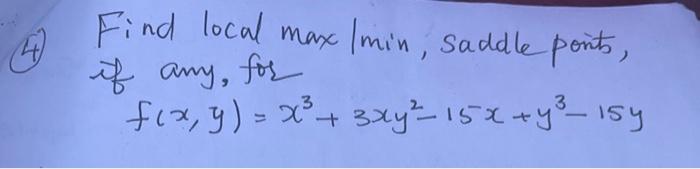 (4) Find local max/min, saddle ponts,
if any, for
f(x, y) = x³ + 3xy² - 15x + y³ - 15y